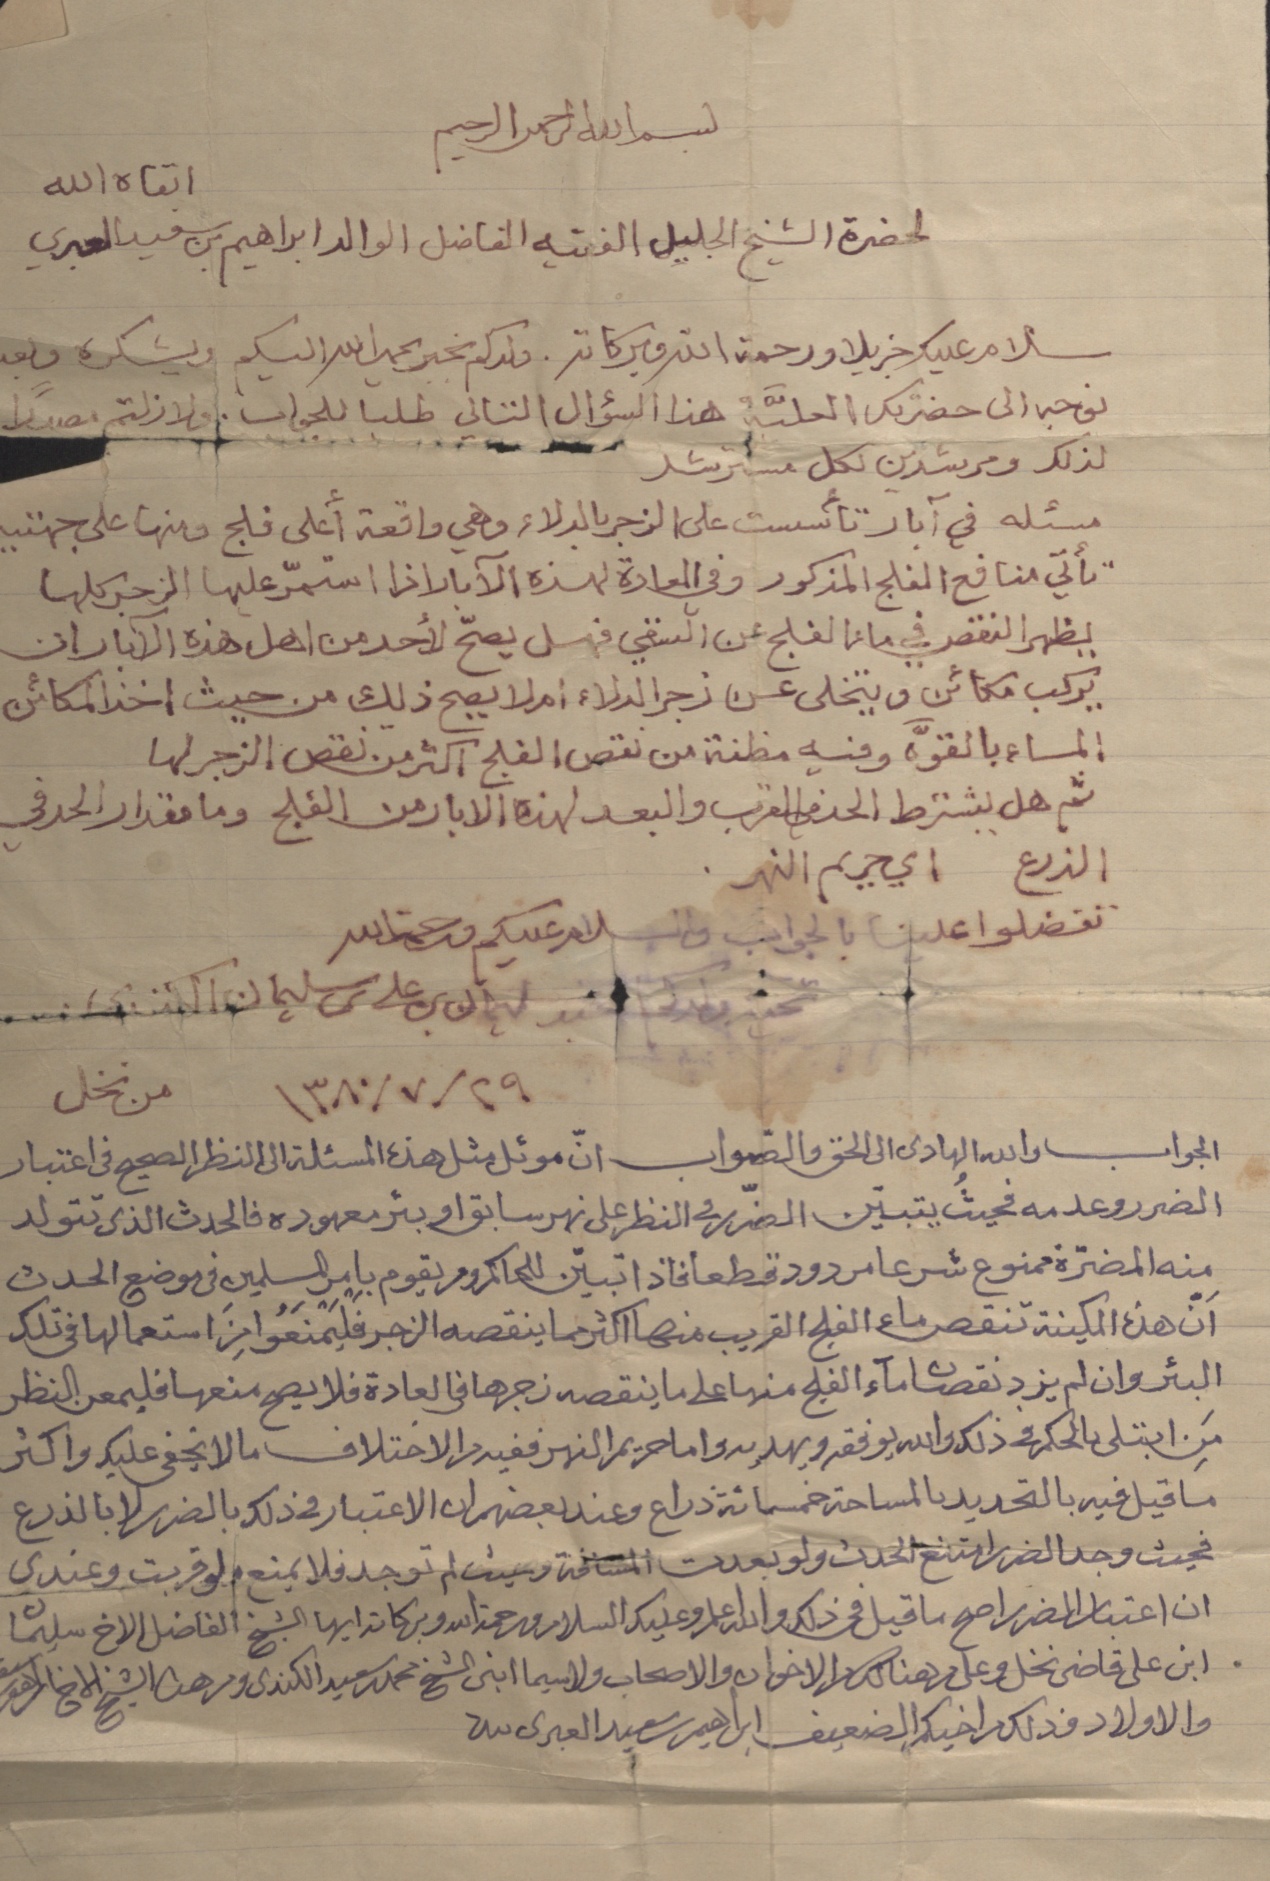 بسم الله الرحمن الرحيم
ابقاه الله
لحضرة الشيخ الجليل الفقيه الفاضل الوالد ابراهيم بن سعيد العبري
سلام عليك جزيلا ورحمة الله وبركاته . ولدكم بخير يحمد الله اليكم ويشكره وبعد
نوجه الى حضرتك العليَّة هذا السؤال التالي طلبا للجواب . ولا زلتم
لذلك ومرشدين لكل مسترشد
مسئله في آبار تأسست على الزجر بالدلاء وهي واقعة أعلى فلج ومنها على جهتيه
تأتي منافع الفلج المذكور وفي العادة لهذه الآبار اذا استمرّ عليها الزجر كلها
يظهر النقص في ماء الفلج عن السقي فهل يصحّ لأحد من اهل هذه الآبار ان
يركب مكائن ويتخلى عن زجر الدلاء ام لا يصح ذلك من حيث اخذ المكائن
الماء بالقوَّه وفيه مظنة من نقص الفلج اكثر من نقص الزجر لها
ثم هل يشترط الحد في القرب والبعد لهذه الابار من الفلج وما مقدار الحد في
الذرع اي حريم النهر .
تفضلوا علينا بالجواب والسلام عليكم ورحمة الله
بن علي بن سليمان الكندي
٢٩/ ٧/ ١٣٨٠ من نخل
الجواب والله الهادى الى الحق والصّواب انّ موئل مثل هذه المسئلة الى النظر الصحيح فى اعتبار
الضرر وعدمه فحيثُ يتبيّن الضّرر فى النظر على نهر سابق او بئر معهوده فالحدث الذى تتولد
منه المضرّة ممنوع شرعا مردود قطعا فاذا تبيّن للحاكم ومن يقوم بامر المسلمين فى موضع الحدث
اَنَّ هذه المكينة تنقص ماء الفلج القريب منها اكثر مما ينقصه الزجر فَلْيَمْنَعُوا مِنَ استعمالها فى تلك
البئر وان لم يزد نقصان مآء الفلج منها على ما ينقصه زجرها فى العادة فلا يصح منعها فليمعن النظر
مَن ابتلى بالحكم فى ذلك والله يوفقه ويهديه واما حريم النهر ففيه من الاختلاف ما لا يخفى عليك واكثر
ما قيل فيه بالتحديد بالمساحة خمسمائة ذراع وعند بعضهم ان الاعتبار فى ذلك بالضرر لا بالذرع
فحيث وجد الضرر امتنع الحدث ولو بعدت المسافة وحيث لم توجد فلا يمنع ولو قربت وعندى
ان اعتبار الضرر اصح ما قيل فى ذلك والله اعلم وعليك السلام ورحمة الله وبركاته ايها الشيخ الفاضل الاخ سليمان
ابن على قاضى نخل وعلى من هناك من الاخوان والاصحاب ولا سيما ابنى الشيخ محمد بن سعيد الكندى ومن هنا الشيخ الاخ
والاولاد وذلك من اخيكم الضعيف ابراهيم بن سعيد العبرى بيده